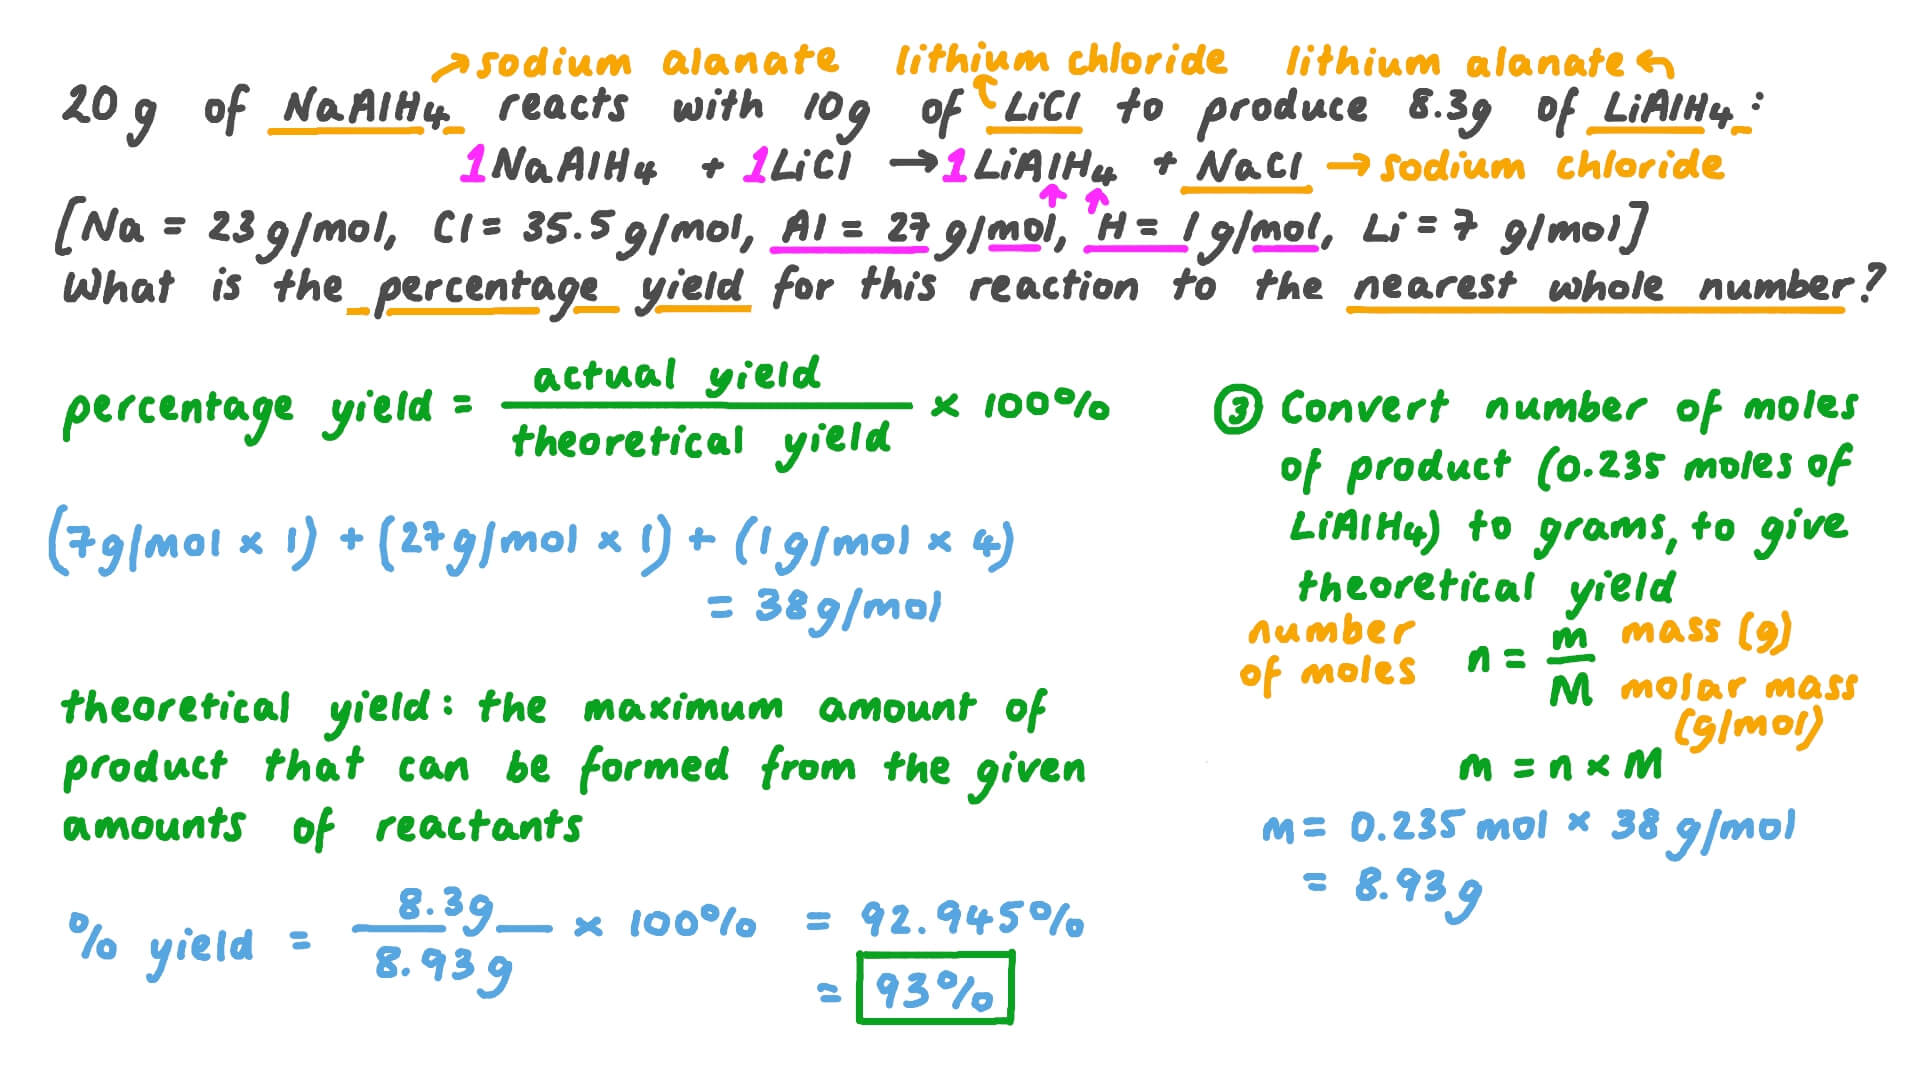 sodium alanate lithium chloride lithium alanate
20g of NaAlH4 reacts with 10g of LiCl to produce 8.3g of LiAlH4:
1NaAlH4 + 1LiCl → 1LiAlH4 + NaCl → sodium chloride
[Na = 23g/mol, Cl = 35.5g/mol, Al = 27g/mol, H = 1g/mol, Li = 7 g/mol]
What is the percentage yield for this reaction to the nearest whole number?
percentage yield = actual yield / theoretical yield × 100%
(7g/mol × 1) + (27g/mol × 1) + (1g/mol × 4)
= 38g/mol
theoretical yield: the maximum amount of
product that can be formed from the given
amounts of reactants
% yield = 8.3g / 8.93g × 100% = 92.945%
= 93%
③ Convert number of moles
of product (0.235 moles of
LiAlH4) to grams, to give
theoretical yield
number
of moles
n = m / M
mass (g)
molar mass
(g/mol)
m = n × M
m = 0.235 mol × 38 g/mol
= 8.93g